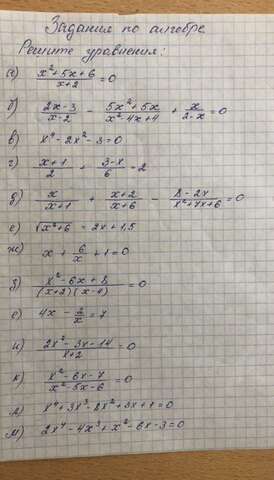 Задания по алгебре
Решите уравнения:
а) (x²+5x+6)/(x+2) = 0
б) (2x-3)/(x-2) - (5x²+5x)/(x²-4x+4) + x/(2-x) = 0
в) x⁴-2x²-3=0
г) (x+1)/2 + (3-x)/6 = 2
д) x/(x+1) + (x+2)/(x+6) - (8-2x)/(x²+7x+6) = 0
е) √x²+6 = 2x+1,5
ж) x + 6/x + 1 = 0
з) (x²-6x+8)/((x+2)(x-4)) = 0
е) 4x - 2/x = 7
и) (2x²-3x-14)/(x+2) = 0
к) (x²-6x-7)/(x²-5x-6) = 0
л) x⁴+3x³-8x²+3x+1=0
м) 2x⁴-4x³+x²-6x-3=0